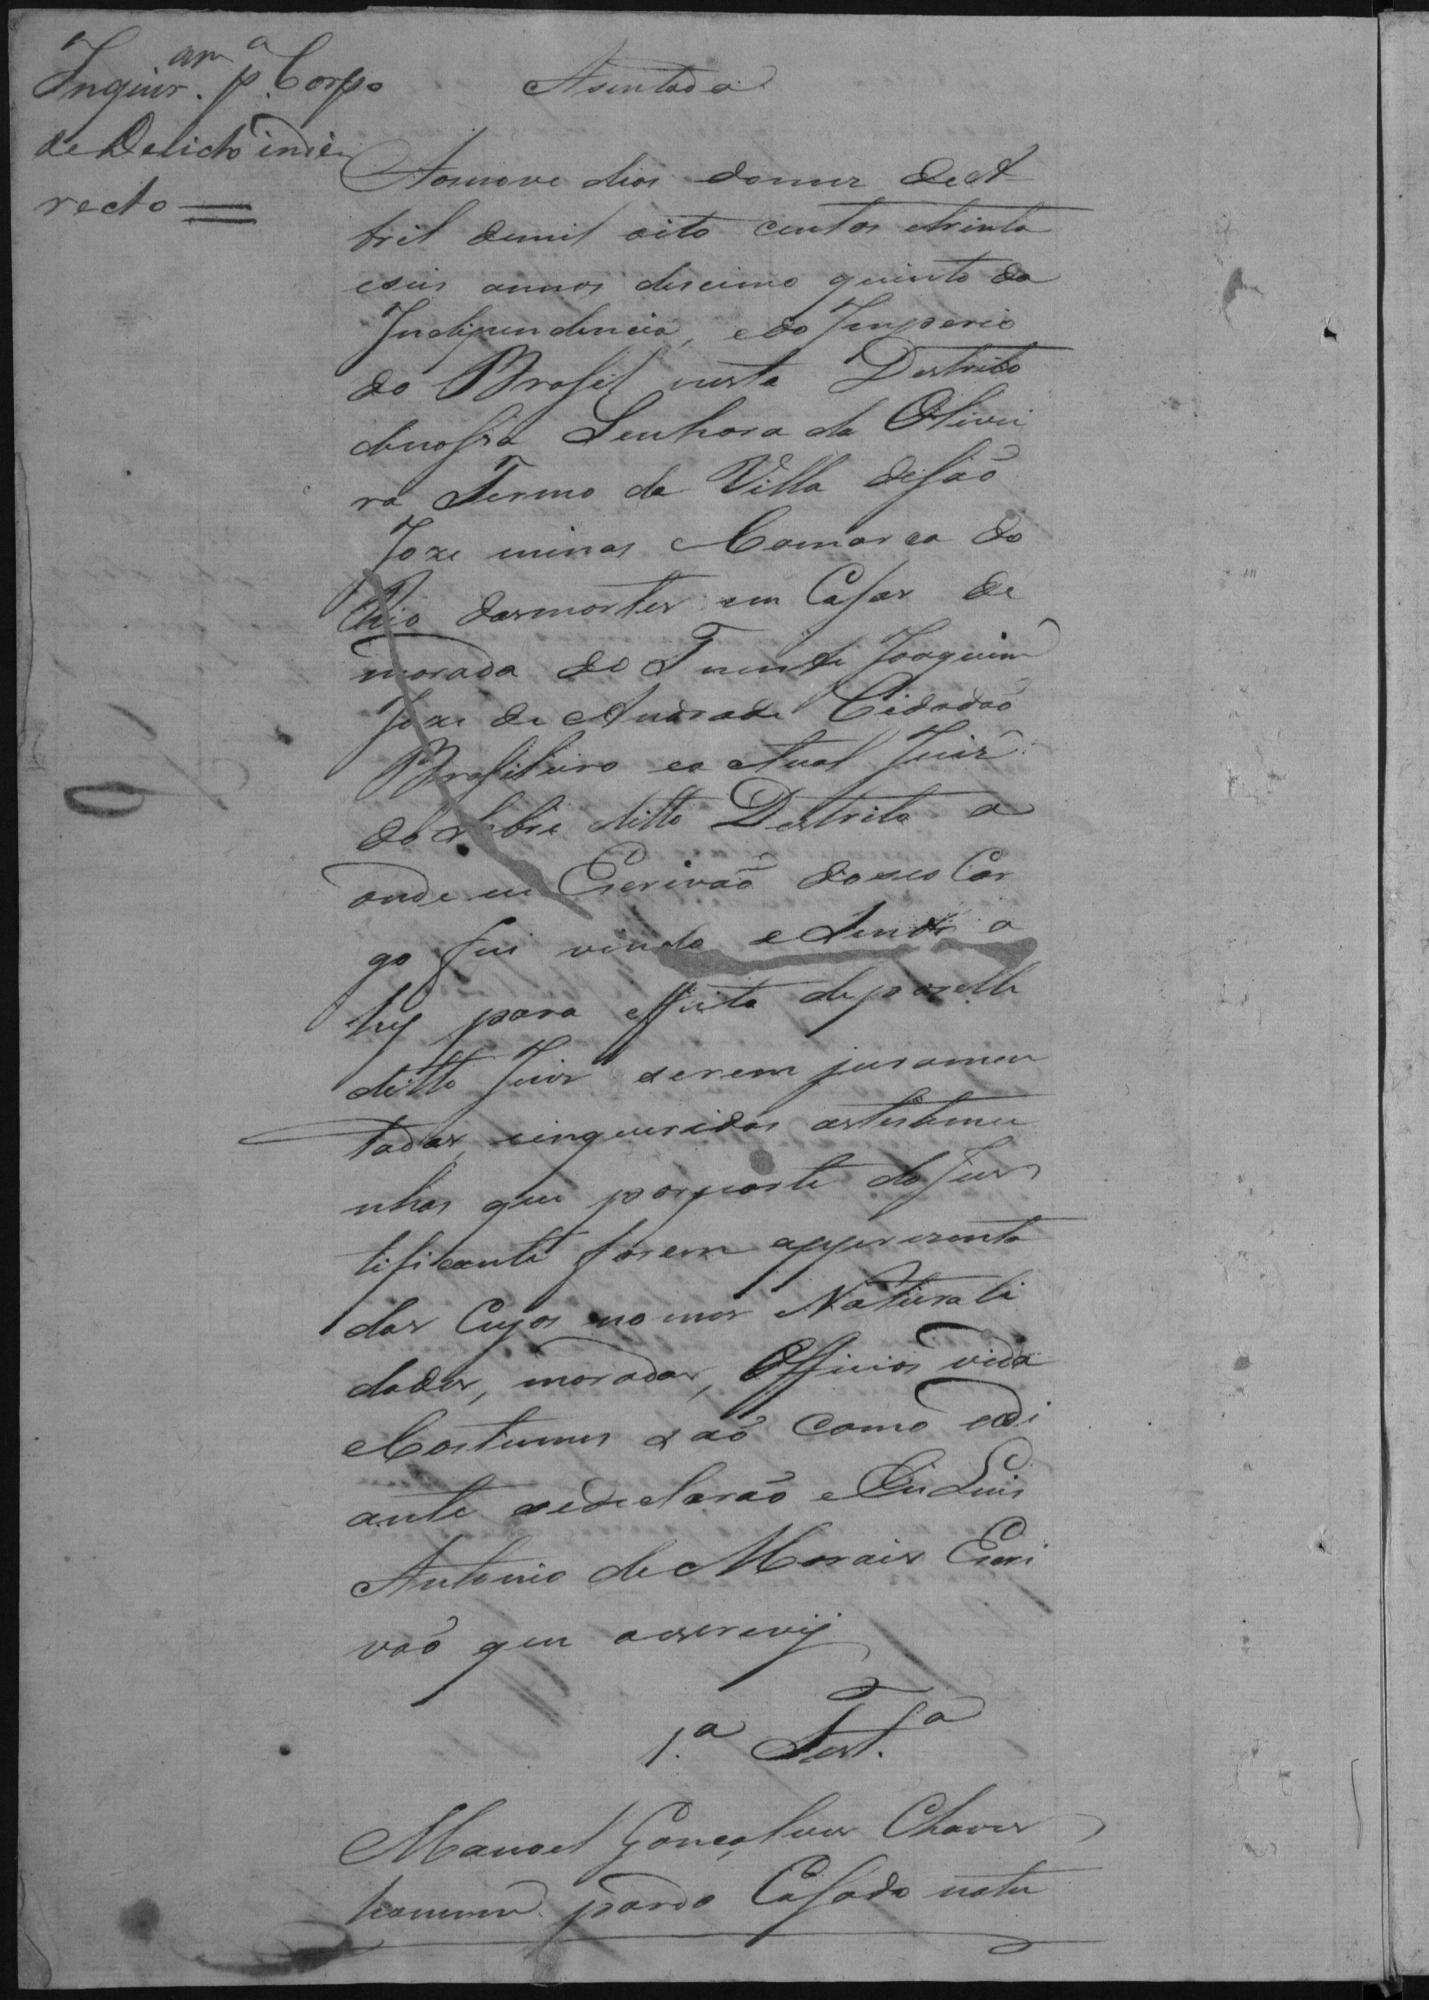 Inquir.am p.a Corpo
de Delicto indi
recto =
Asentada
Aosnove dias domez de A
bril demil oito centos etrinta
eseis annos decimo quinto da
Independencia, edo Imperio
do Brasil neste Destrito
denossa Senhora da Olivei
ra Termo da Villa desaõ
Joze minas Comarca do
Rio dasmortes em Casas de
morada do Tenente Joaquim
Joze de Andrade Cidadaõ
Brasileiro eo actual Juiz
do Sobre ditto Destrito a
onde eu Escrivaõ doseo Car
go fui vindo e sendo a
hy para effeito de por elle
ditto Juiz serem juramen
tadas, einqueridas astestemu
nhas que porparte do Jus
tificante forem apperzenta
das Cujos nomes Naturali
dades, moradas, Officios vida
e Costumes saõ como adi
ante sedeclaraõ e Eu Luis
Antonio de Morais Escri
vaõ que oescrevy
1.a Test.a
Manoel Gonçalves Chaves
homem pardo Casado natu